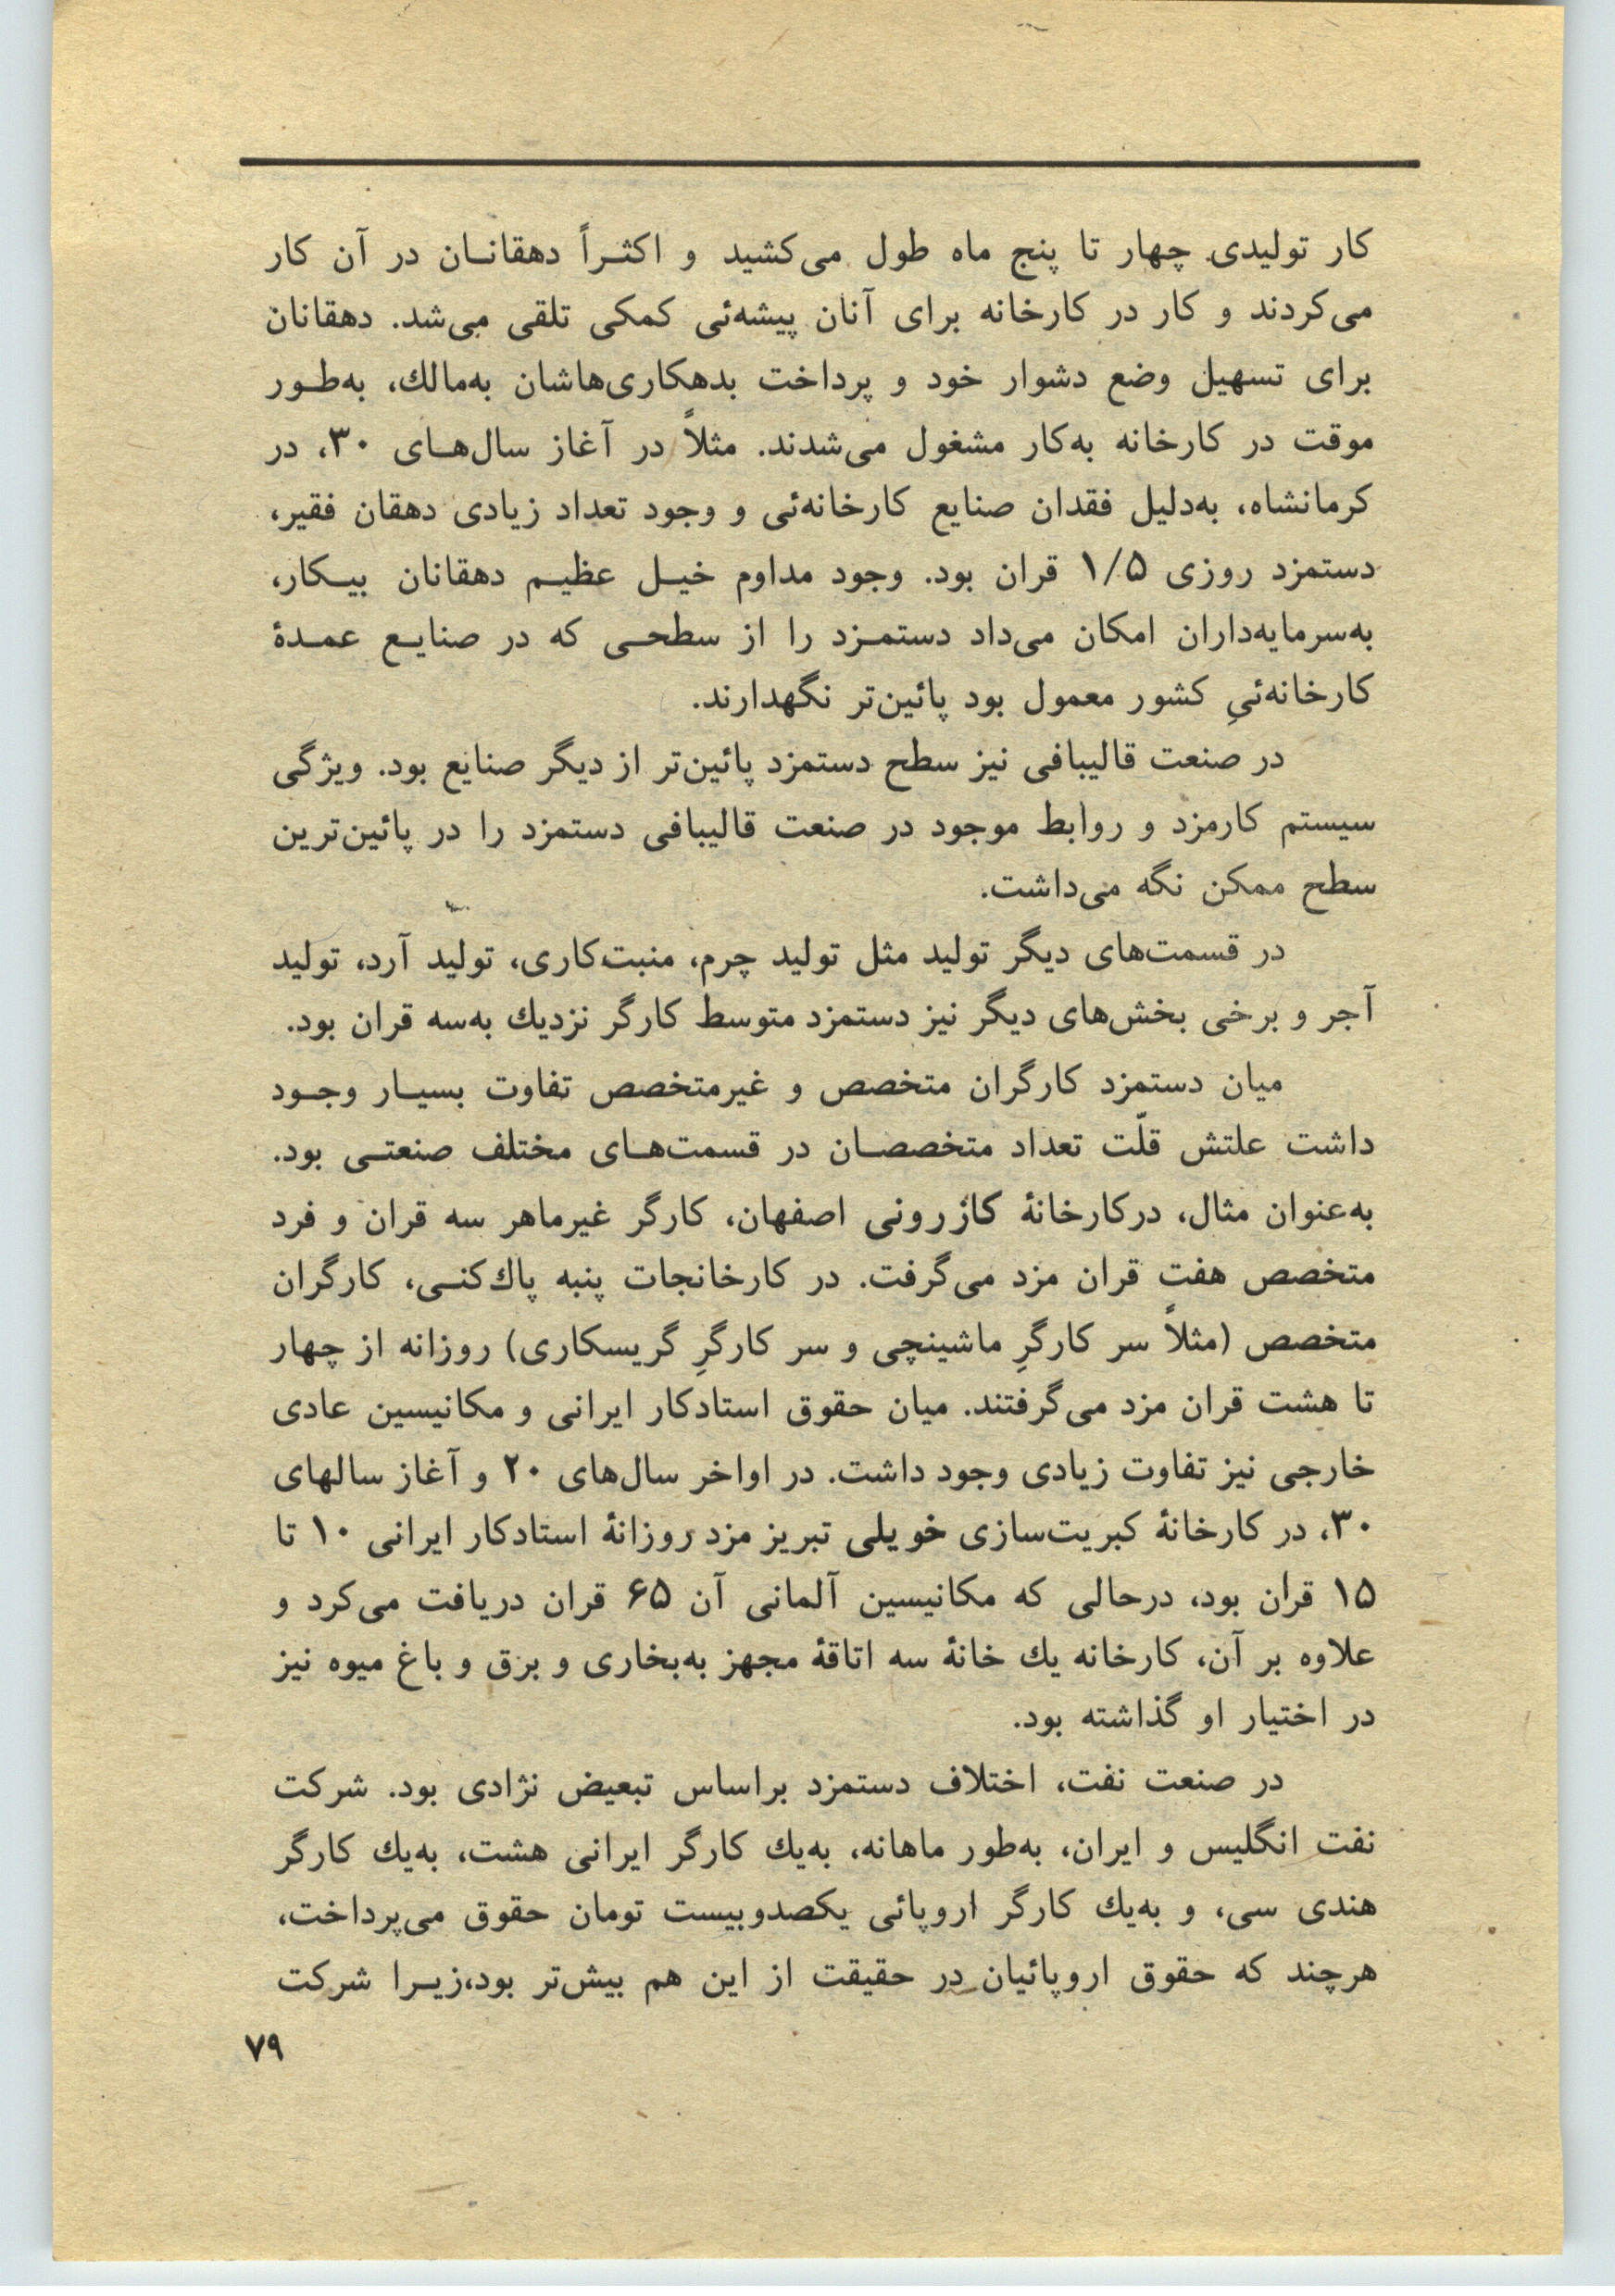 کار تولیدی چهار تا پنج ماه طول می‌کشید و اکثـراً دهقانـان در آن کار
می‌کردند و کار در کارخانه برای آنان پیشه‌ئی کمکی تلقی می‌شد. دهقانان
برای تسهیل وضع دشوار خود و پرداخت بدهکاری‌هاشان به‌مالك، به‌طـور
موقت در کارخانه به‌کار مشغول می‌شدند. مثلاً در آغاز سال‌هـای ۳۰، در
کرمانشاه، به‌دلیل فقدان صنایع کارخانه‌ئی و وجود تعداد زیادی دهقان فقیر،
دستمزد روزی ۱/۵ قران بود. وجود مداوم خیـل عظیـم دهقانان بیـکار،
به‌سرمایه‌داران امکان می‌داد دستمـزد را از سطحـی که در صنایـع عمـدهٔ
کارخانه‌ئیِ کشور معمول بود پائین‌تر نگهدارند.
در صنعت قالیبافی نیز سطح دستمزد پائین‌تر از دیگر صنایع بود. ویژگی
سیستم کارمزد و روابط موجود در صنعت قالیبافی دستمزد را در پائین‌ترین
سطح ممکن نگه می‌داشت.
در قسمت‌های دیگر تولید مثل تولید چرم، منبت‌کاری، تولید آرد، تولید
آجر و برخی بخش‌های دیگر نیز دستمزد متوسط کارگر نزدیك به‌سه قران بود.
میان دستمزد کارگران متخصص و غیرمتخصص تفاوت بسیـار وجـود
داشت علتش قلّت تعداد متخصصـان در قسمت‌هـای مختلف صنعتـی بود.
به‌عنوان مثال، درکارخانهٔ کازرونی اصفهان، کارگر غیرماهر سه قران و فرد
متخصص هفت قران مزد می‌گرفت. در کارخانجات پنبه پاك‌کنـی، کارگران
متخصص (مثلاً سر کارگرِ ماشینچی و سر کارگرِ گریسکاری) روزانه از چهار
تا هشت قران مزد می‌گرفتند. میان حقوق استادکار ایرانی و مکانیسین عادی
خارجی نیز تفاوت زیادی وجود داشت. در اواخر سال‌های ۲۰ و آغاز سالهای
۳۰، در کارخانهٔ کبریت‌سازی خویلی تبریز مزد روزانهٔ استادکار ایرانی ۱۰ تا
۱۵ قران بود، درحالی که مکانیسین آلمانی آن ۶۵ قران دریافت می‌کرد و
علاوه بر آن، کارخانه یك خانهٔ سه اتاقهٔ مجهز به‌بخاری و برق و باغ میوه نیز
در اختیار او گذاشته بود.
در صنعت نفت، اختلاف دستمزد براساس تبعیض نژادی بود. شرکت
نفت انگلیس و ایران، به‌طور ماهانه، به‌یك کارگر ایرانی هشت، به‌یك کارگر
هندی سی، و به‌یك کارگر اروپائی یکصدوبیست تومان حقوق می‌پرداخت،
هرچند که حقوق اروپائیان در حقیقت از این هم بیش‌تر بود،زیـرا شرکت
۷۹